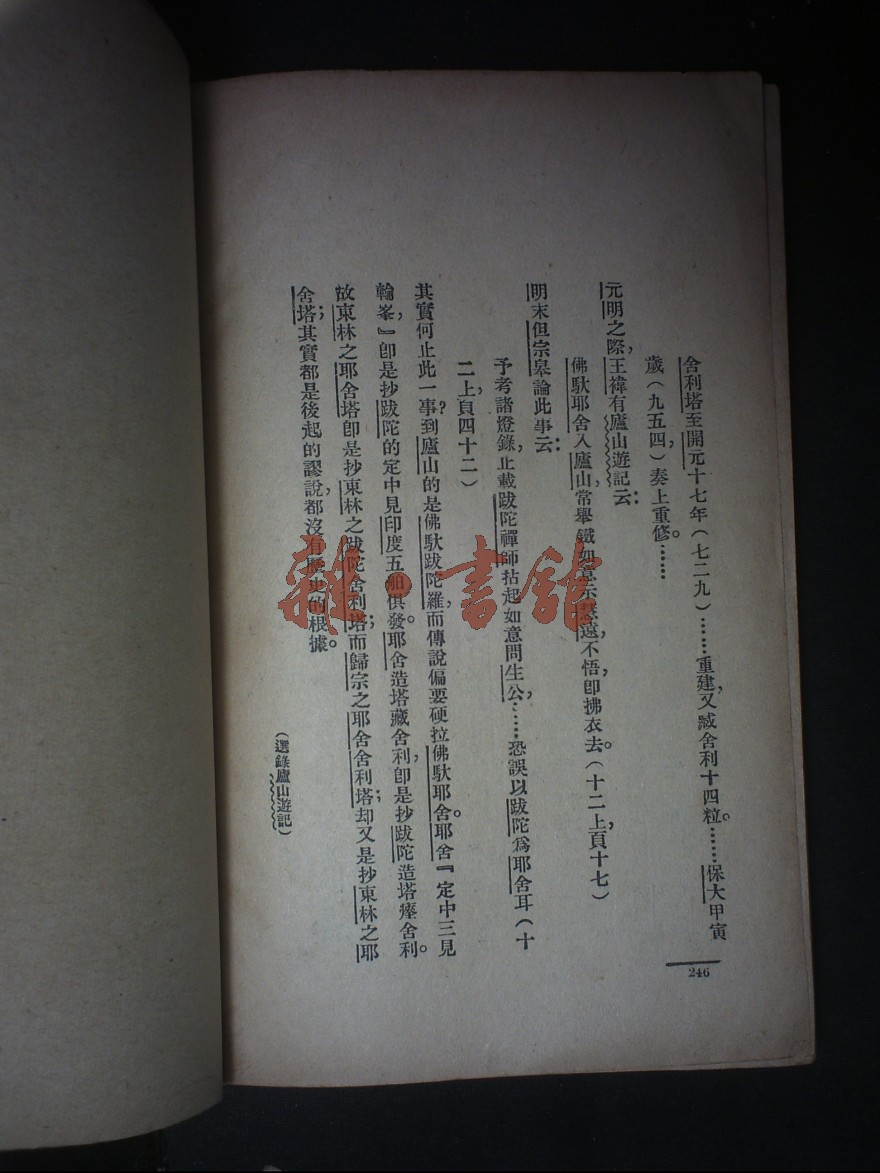 舍利塔至開元十七年（七二九）……重建，又臧舍利十四粒。……保大甲寅
歲（九五四）奏上重修。……
元明之際，王褘有廬山遊記云：
佛馱耶舍入廬山，常舉鐵如意示慧遠，不悟，卽拂衣去。（十二上，頁十七）
明末但宗皋論此事云：
予考諸燈錄，止載跋陀禪師拈起如意問生公，……恐誤以跋陀爲耶舍耳（十
二上，頁四十二）
其實何止此一事？到廬山的是佛馱跋陀羅，而傳說偏要硬拉佛馱耶舍。耶舍『定中三見
輪峯』卽是抄跋陀的定中見印度五舶俱發。耶舍造塔藏舍利，卽是抄跋陀造塔瘞舍利。
故東林之耶舍塔卽是抄東林之跋陀舍利塔；而歸宗之耶舍舍利塔；却又是抄東林之耶
舍塔；其實都是後起的謬說，都沒有歷史的根據。
（選錄廬山遊記）
246
雜·書館